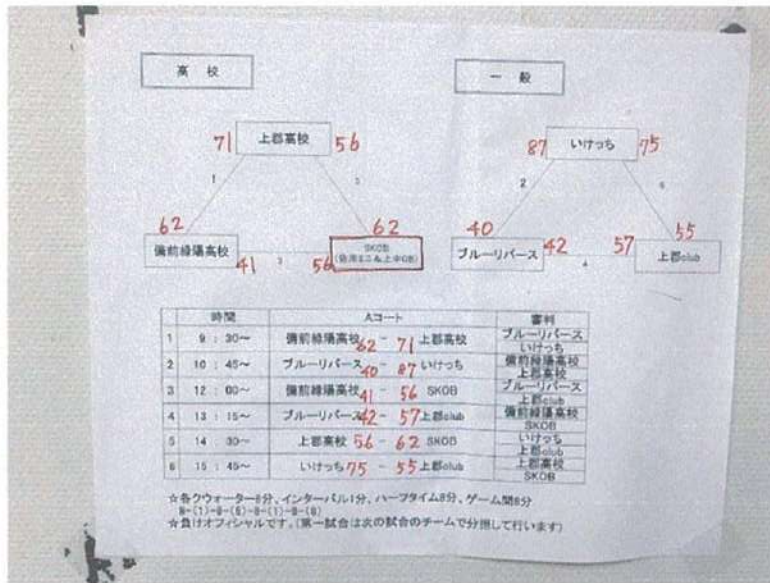 高校 一般
71 上郡高校 56 87 いけっち 75
1 5 2 6
62 62 40 55
備前緑陽高校 3 SKOB ブルーリバース 42 4 57 上郡club
41 56
時間 Aコート 審判
1 9：30～ 備前緑陽高校 62 - 71 上郡高校 ブルーリバース いけっち
2 10：45～ ブルーリバース 40 - 87 いけっち 備前緑陽高校 上郡高校
3 12：00～ 備前緑陽高校 41 - 56 SKOB ブルーリバース 上郡club
4 13：15～ ブルーリバース 42 - 57 上郡club 備前緑陽高校 SKOB
5 14：30～ 上郡高校 56 - 62 SKOB いけっち 上郡club
6 15：45～ いけっち 75 - 55 上郡club 上郡高校 SKOB
☆各クウォーター8分、インターバル1分、ハーフタイム8分、ゲーム間8分
8-(1)-8-(8)-8-(1)-8-(8)
☆負けオフィシャルです。(第一試合は次の試合のチームで分担して行います)